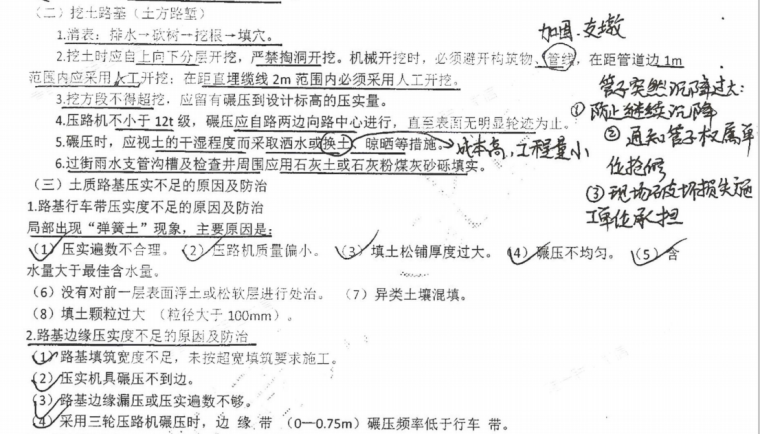 （二）挖土路基（土方路堑）
1.清表：排水→砍树→挖根→填穴。
加固.支撑
2.挖土时应自上向下分层开挖，严禁掏洞开挖。机械开挖时，必须避开构筑物、管线，在距管道边 1m
范围内应采用人工开挖；在距直埋缆线 2m 范围内必须采用人工开挖。
3.挖方段不得超挖，应留有碾压到设计标高的压实量。
4.压路机不小于 12t 级，碾压应自路两边向路中心进行，直至表面无明显轮迹为止。
5.碾压时，应视土的干湿程度而采取洒水或换土、晾晒等措施。
→成本高，工程量小
6.过街雨水支管沟槽及检查井周围应用石灰土或石灰粉煤灰砂砾填实。
管子突然沉降过大：
①防止继续沉降
②通知管子权属单
位抢修
③现场破坏损失施
工单位承担
（三）土质路基压实不足的原因及防治
1.路基行车带压实度不足的原因及防治
局部出现“弹簧土”现象，主要原因是：
（1）压实遍数不合理。（2）压路机质量偏小。（3）填土松铺厚度过大。（4）碾压不均匀。（5）含
水量大于最佳含水量。
（6）没有对前一层表面浮土或松软层进行处治。（7）异类土壤混填。
（8）填土颗粒过大 （粒径大于 100mm）。
2.路基边缘压实度不足的原因及防治
（1）路基填筑宽度不足，未按超宽填筑要求施工。
（2）压实机具碾压不到边。
（3）路基边缘漏压或压实遍数不够。
（4）采用三轮压路机碾压时，边 缘 带 （0—0.75m）碾压频率低于行车 带。